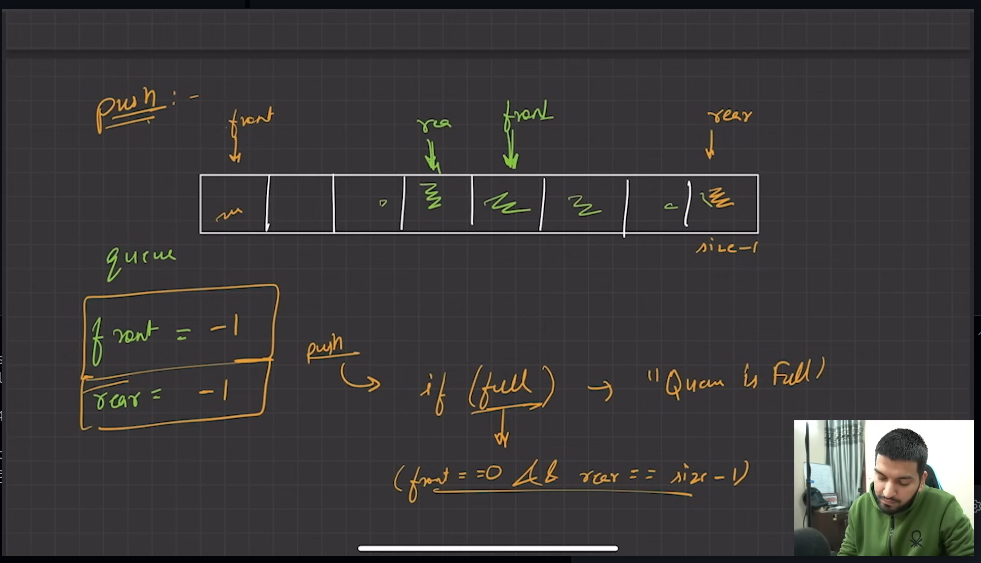 push :-
front
rea
front
rear
size-1
queue
front = -1
rear = -1
push
if (full) → "Queue is Full)
(front == 0 && rear == size - 1)